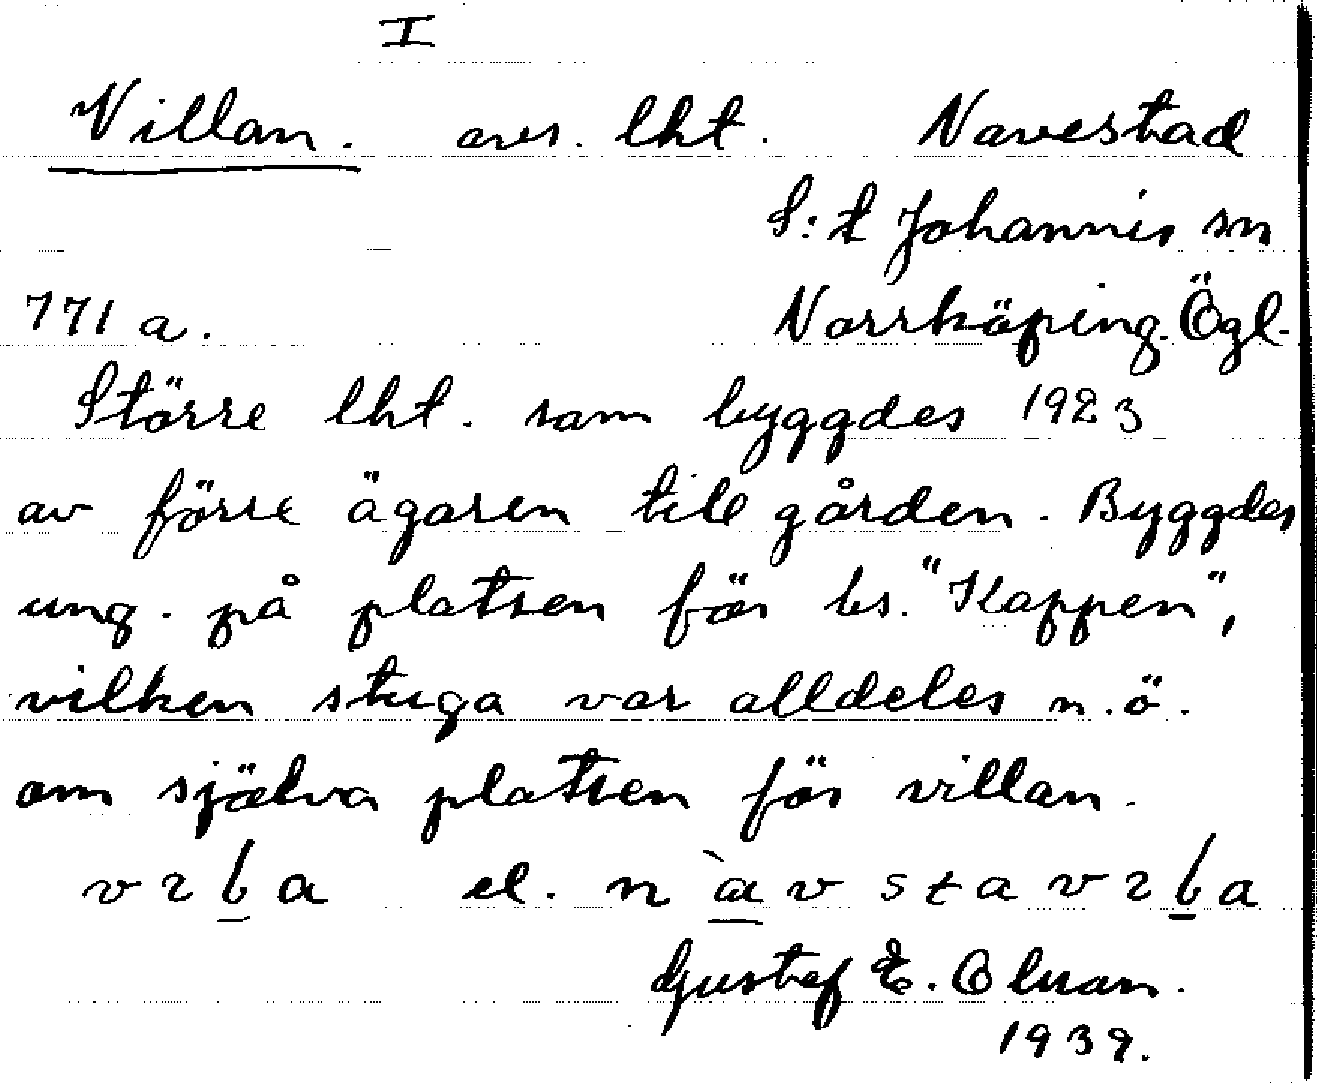 I
Villan. avs. lht. Navestad
S:t Johannis sn
771 a. Norrköping. Ögl.
Större lht. som byggdes 1923
av förre ägaren till gården. Byggdes
ung. på platsen för bs. "Kappen",
vilken stuga var alldeles n.ö.
om själva platsen för villan.
v ɿ b a el. n à v s t a v ɿ b a
Gustef E. Olsson.
1939.